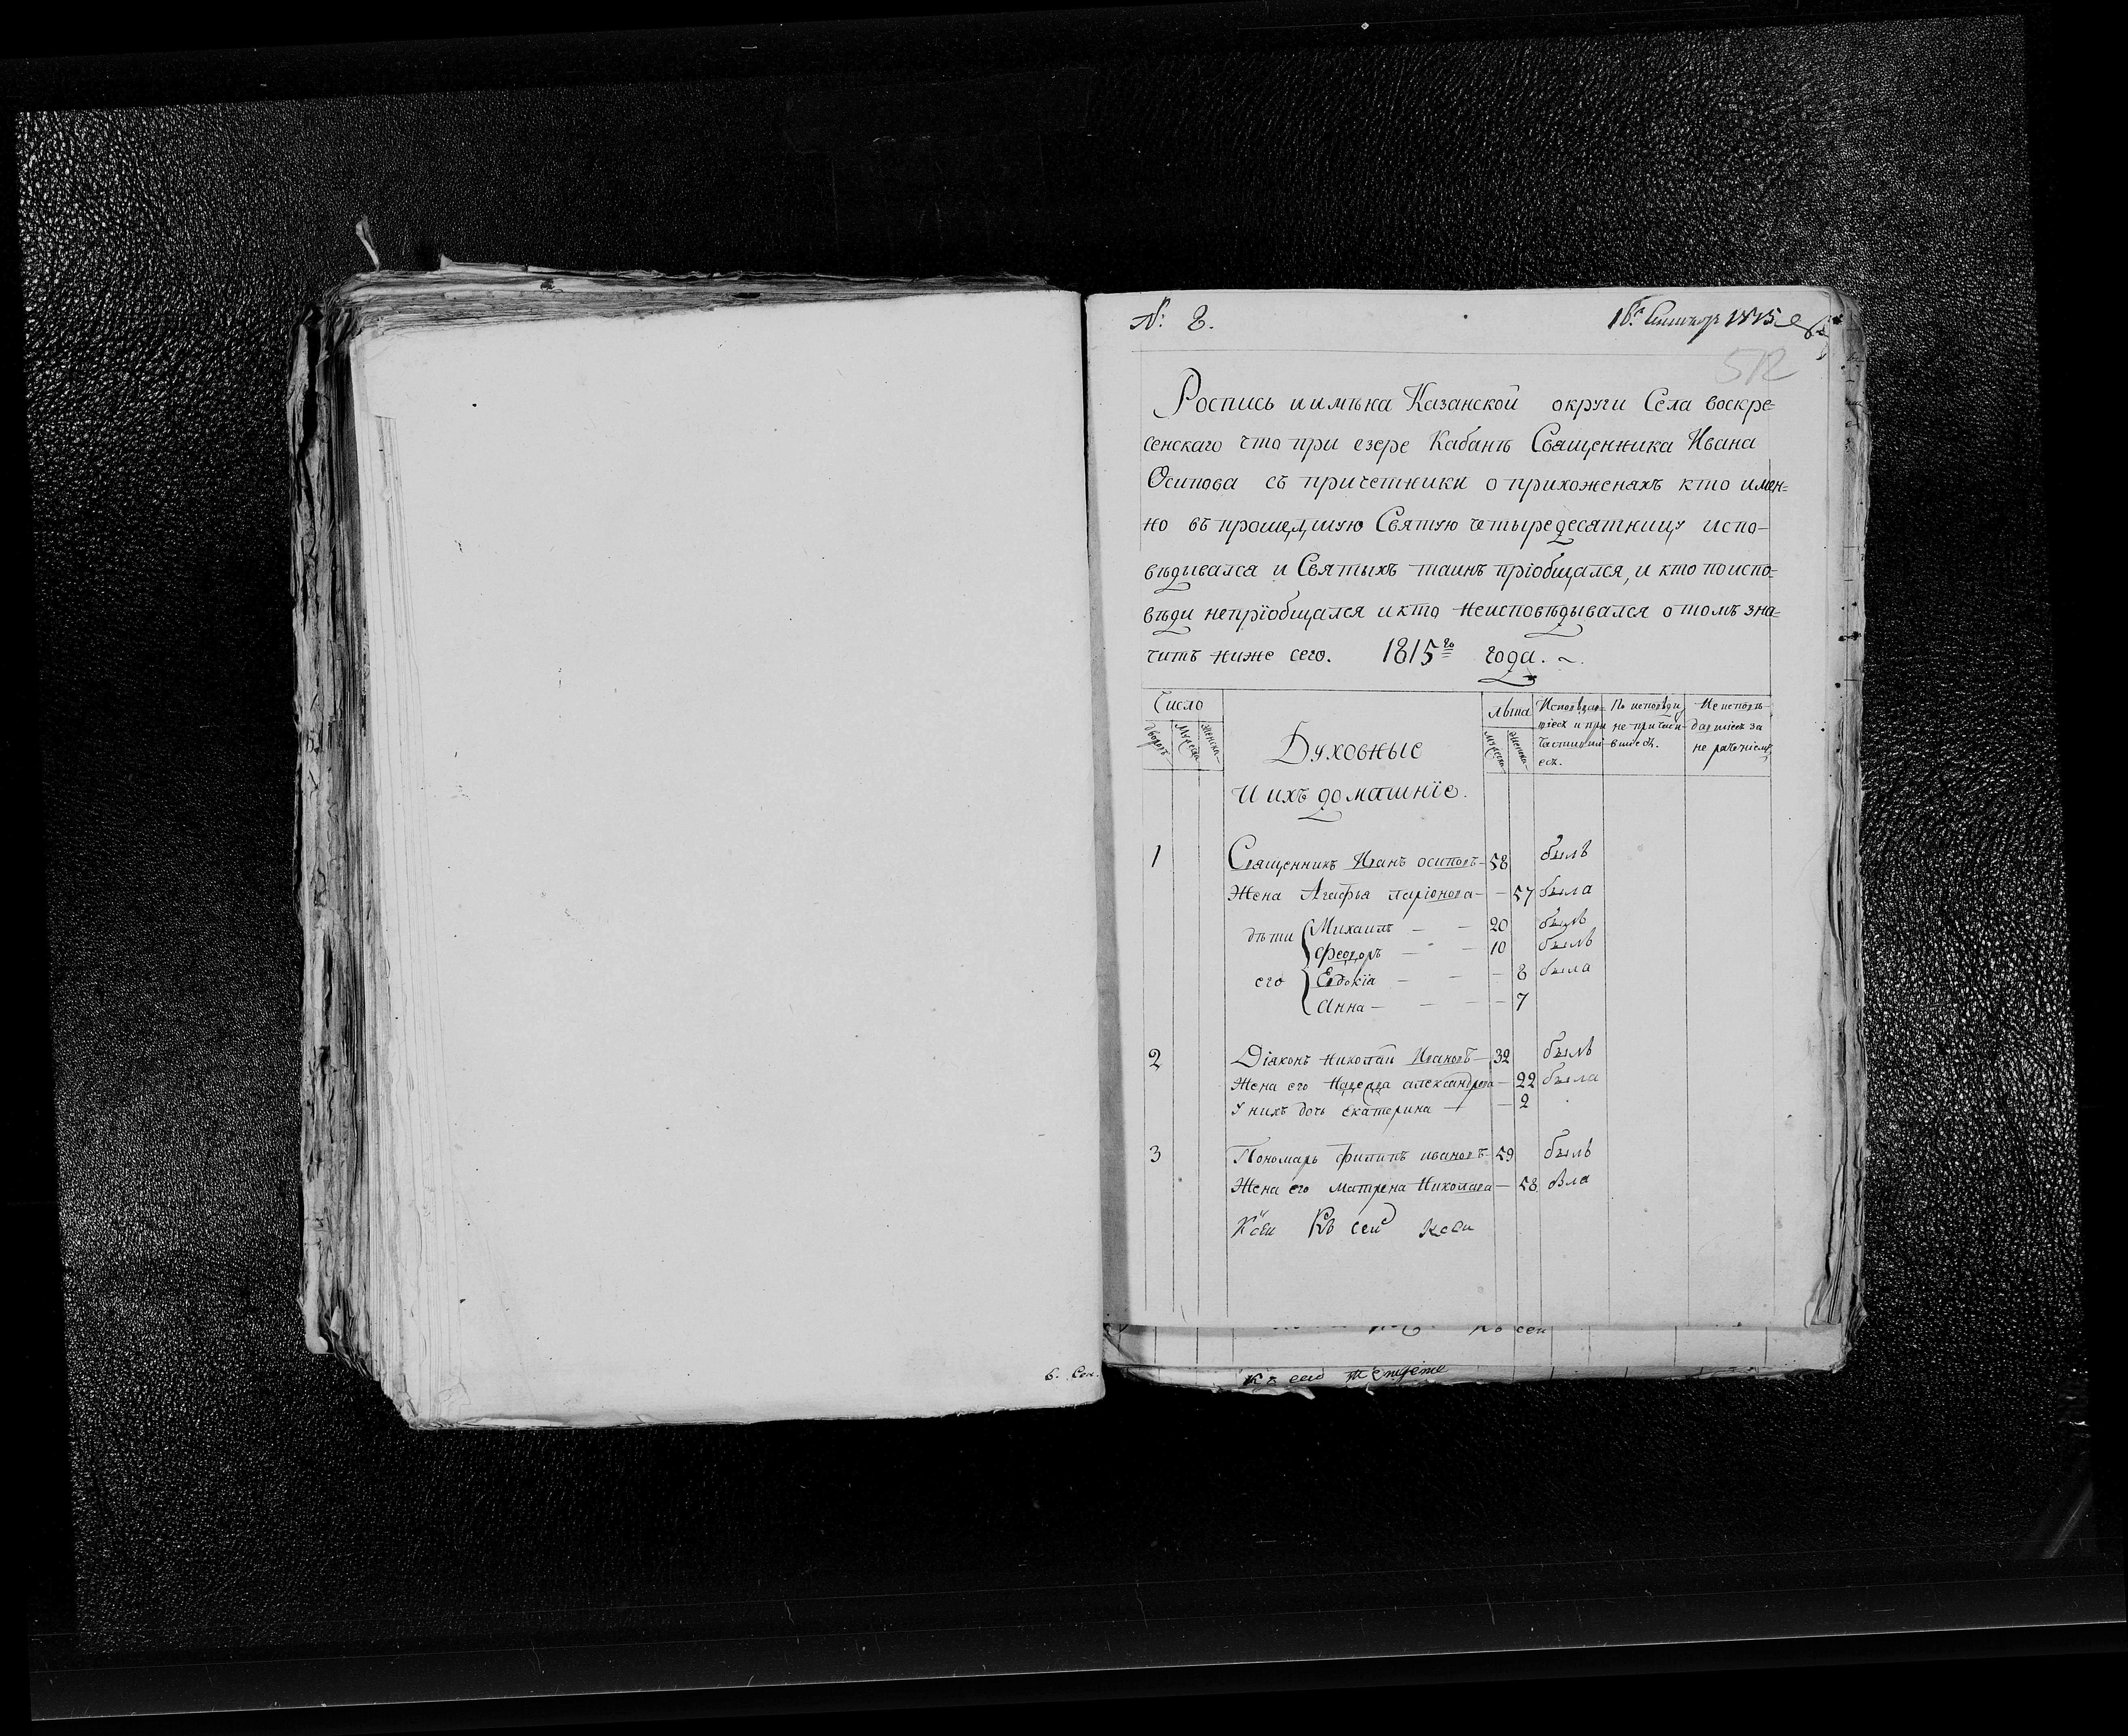 № 8.
16. 1815
512
Роспись и имѣна Казанской округи Села воскре-
сенскаго что при езере Кабанѣ Священника Ивана
Осипова съ причетники о прихоженахъ кто имен-
но въ прошедшую Святую четыредесятницу испо-
вѣдывался и Святыхъ таинъ пріобщался, и кто по испо-
вѣди непріобщался и кто неисповѣдывался о томъ зна-
читъ ниже сего. 1815го года.
Число
дворовъ Мужеска Женска
Духовные
и ихъ домашніе.
лѣта
Мужеска Женска
Исповѣдав-
шіеся и при
частивши
еся.
По исповѣди
не причасти-
вшіеся.
Не исповѣ-
давшіеся за
не раченіемъ
1 Священникъ Иванъ осиповъ 58 былъ
Жена Агафья ларіонова 57 была
дѣти Михаилъ 20 былъ
Феодоръ 10 былъ
его Евдокія 8 была
Анна 7
2 Діаконъ николай Ивановъ 32 былъ
Жена его Надежда александрова 22 была
У нихъ дочь екатерина 2
3 Пономарь филипъ ивановъ 59 былъ
Жена его матрена Николаева 58 была
Къ сей
Къ сей
6. Сен.
Къ сей